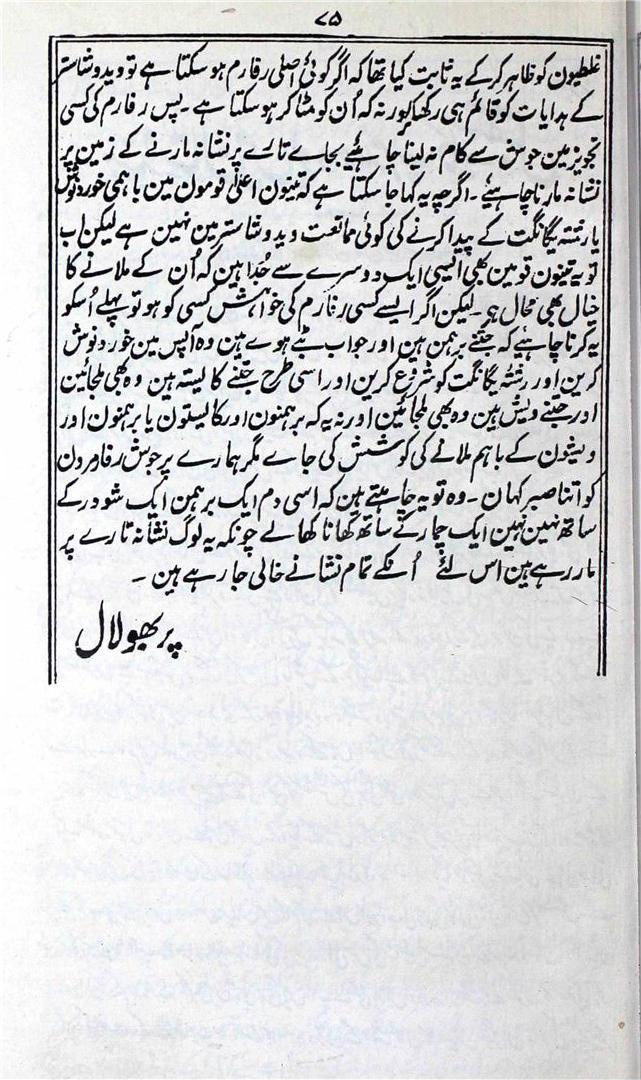 ۷۵
غلطیون کو ظاہر کرکے یہ ثابت کیا تھا کہ اگر کوئی اصلی رفارم ہو سکتا ہے تو وید و شاستر
کے ہدایات کو قائم ہی رکھکر ورنہ کہ اُن کو مٹا کر ہو سکتا ہے ۔ پس رفارم کی کسی
تجویز مین جوش سے کام نہ لینا چاہئیے بجاے تارے پر نشانہ مارنے کے زمین پر
نشانہ مارنا چاہئے ۔ اگرچہ یہ کہا جا سکتا ہے کہ تینون اعلیٰ قومون مین باہمی خوردنوش
یا رشتہ یگانگت کے پیدا کرنے کی کوئی ممانعت وید و شاستر مین نہین ہے لیکن اب
تو یہ تینون قومین بھی ایسی ایک دوسرے سے جُدا ہین کہ اُن کے ملانے کا
خیال بھی محال ہے ۔ لیکن اگر ایسے کسی رفارم کی خواہش کسی کو ہو تو پہلے اُسکو
یہ کرنا چاہئے کہ جتنے برہمن ہین اور جواب بٹے ہوے ہین وہ آپس مین خورد نوش
کرین اور رشتہ یگانگت کو شروع کرین اور اسی طرح جتنے کایستہ ہین وہ بھی ملجائین
اور جتنے ویش ہین وہ بھی ملجائین اور نہ یہ کہ برہمنون اور کایستون یا برہمنون اور
ویشون کے باہم ملانے کی کوشش کی جاے مگر ہمارے پرجوش رفارمرون
کو اتنا صبر کہان ۔ وہ تو یہ چاہتے ہین کہ اسی دم ایک برہمن ایک شودر کے
ساتھ نہین نہین ایک چمار کے ساتھ کھانا کھالے چونکہ یہ لوگ نشانہ تارے پر
مار رہے ہین اس لئے اُنکے تمام نشانے خالی جا رہے ہین ۔
پربھولال